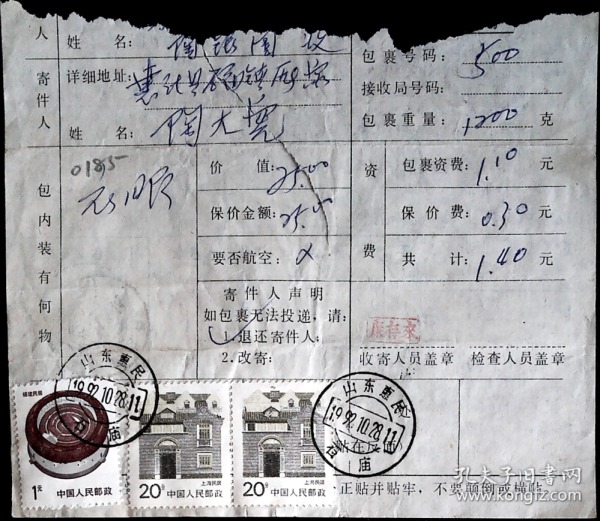 人 姓 名：
包裹号码： 500
寄件人
详细地址：
接收局号码：
姓 名： 陶大宪
包裹重量： 1200 克
0185
包内装有何物
价 值： 25.00
保价金额： 25.00
要否航空： ×
资费
包裹资费： 1.10 元
保价费： 0.30 元
共 计： 1.40 元
寄件人声明
如包裹无法投递，请：
1.退还寄件人；
2.改寄：
收寄人员盖章 检查人员盖章
山东惠民
1992.10.28.11
石庙
山东惠民
1992.10.28.11
石庙
福建民居
1元 中国人民邮政
上海民居
20分 中国人民邮政
上海民居
20分 中国人民邮政
正贴并贴牢，不要颠倒或横贴
孔夫子旧书网
kongfz.com